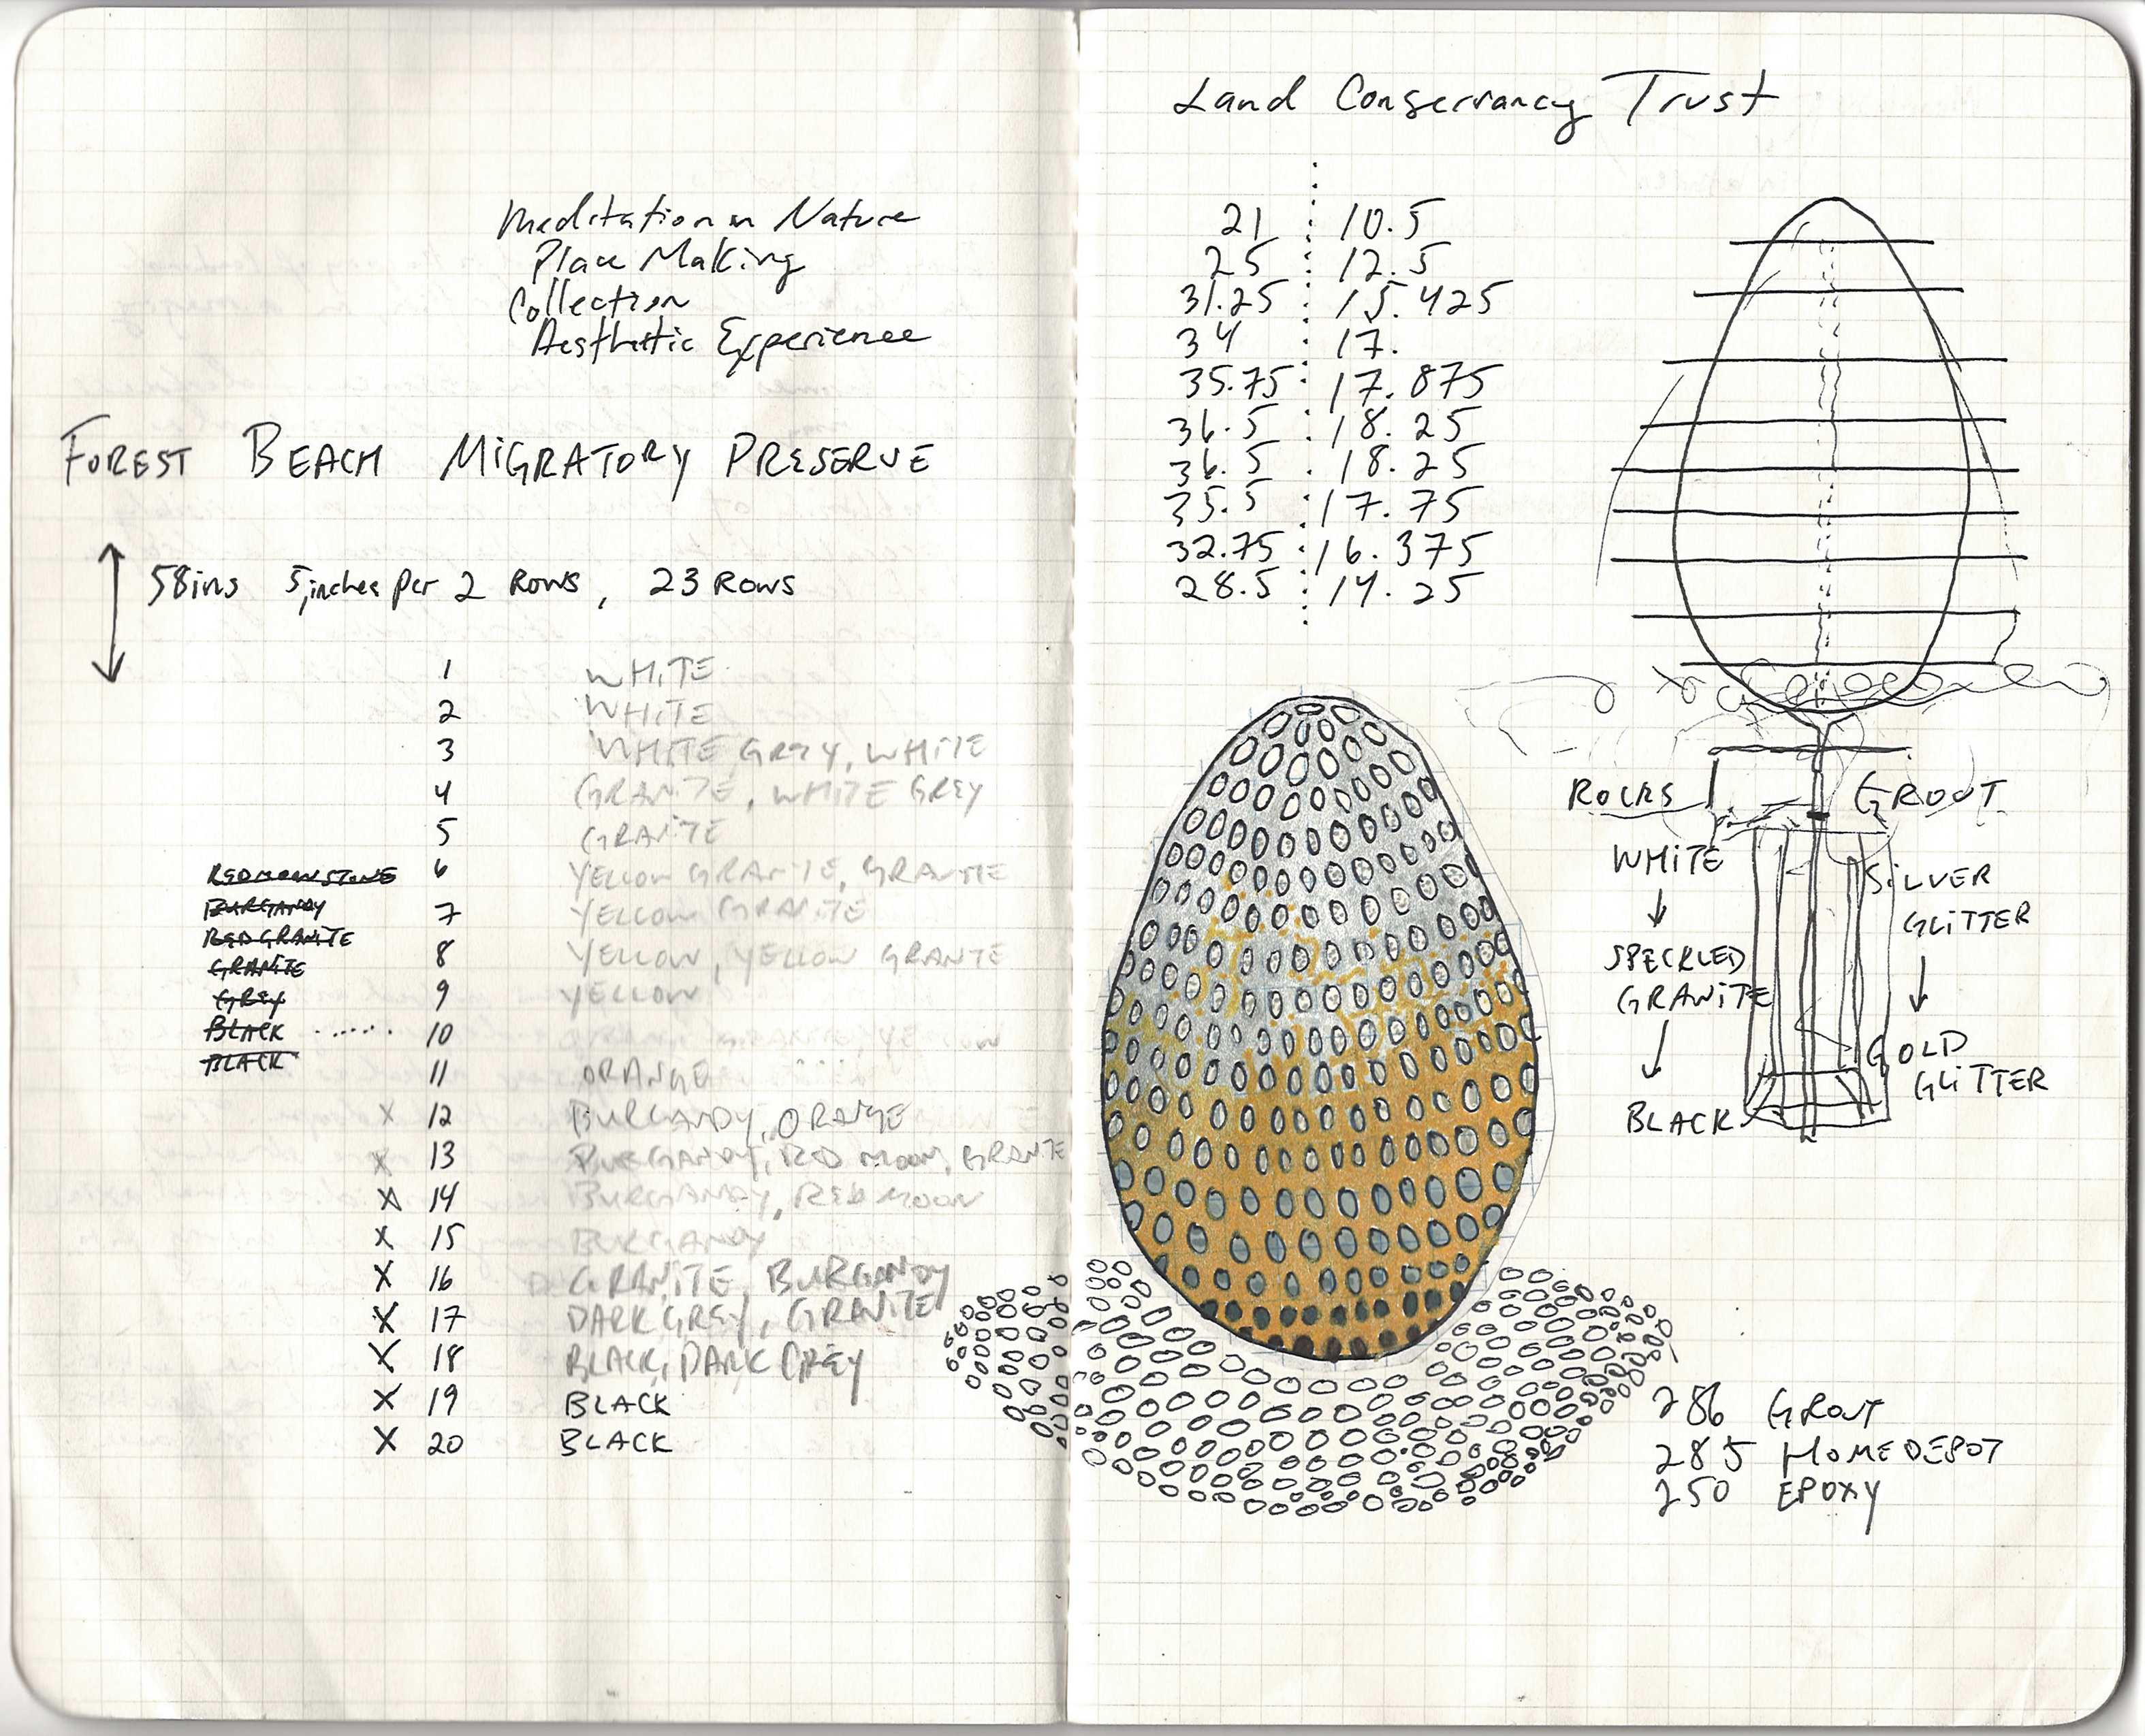 Meditation in Nature
Place Making
Collection
Aesthetic Experience
FOREST BEACH MIGRATORY PRESERVE
58ins 5,inches per 2 ROWS, 23 ROWS
1 WHITE
2 WHITE
3 WHITE GREY, WHITE
4 GRANITE, WHITE GREY
5 GRANITE
REDMOONSTONE 6 YELLOW GRANITE, GRANITE
BURGANDY 7 YELLOW GRANITE
RED GRANITE 8 YELLOW, YELLOW GRANITE
GRANITE
GREY 9 YELLOW
BLACK ...... 10 YELLOW
BLACK 11 ORANGE
X 12 BURGANDY, ORANGE
X 13 BURGANDY, RED MOON, GRANITE
X 14 BURGANDY, RED MOON
X 15 BURGANDY
X 16 GRANITE, BURGANDY
X 17 DARK GREY, GRANITE
X 18 BLACK, DARK GREY
X 19 BLACK
X 20 BLACK
Land Conservancy Trust
21 10.5
25 12.5
31.25 15.425
34 17.
35.75 17.875
36.5 18.25
36.5 18.25
35.5 17.75
32.75 16.375
28.5 14.25
ROCKS
WHITE
SPECKLED
GRANITE
BLACK
GROUT
SILVER
GLITTER
GOLD
GLITTER
286 GROUT
285 HOMEDEPOT
250 EPOXY